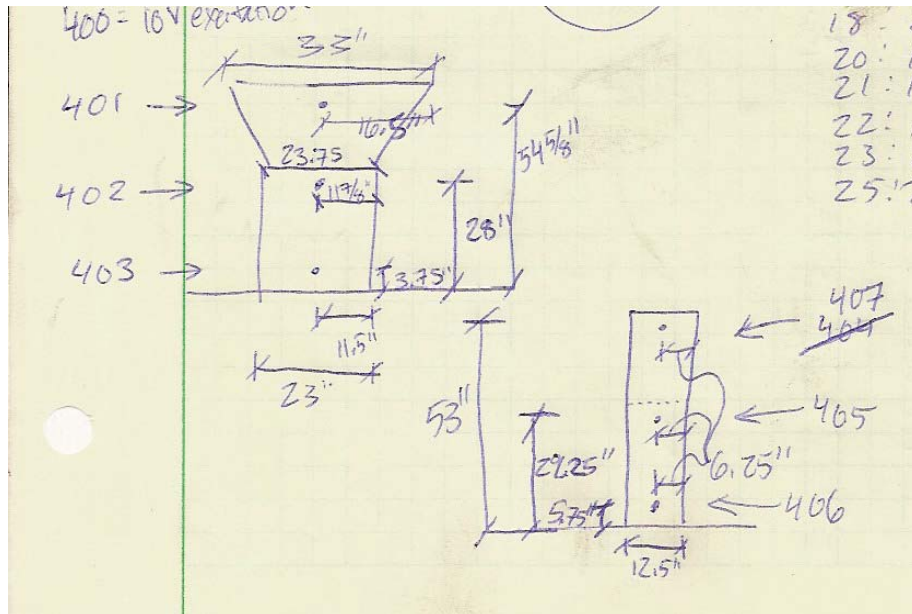 400 = 10V exitation
33"
401 →
16.5"
23.75
402 →
11 7/8"
28"
54 5/8"
403 →
3.75"
11.5"
23"
18:
20:
21:
22:
23:
25:
407
404
53"
← 405
29.25"
6.25"
5.75"
← 406
12.5"